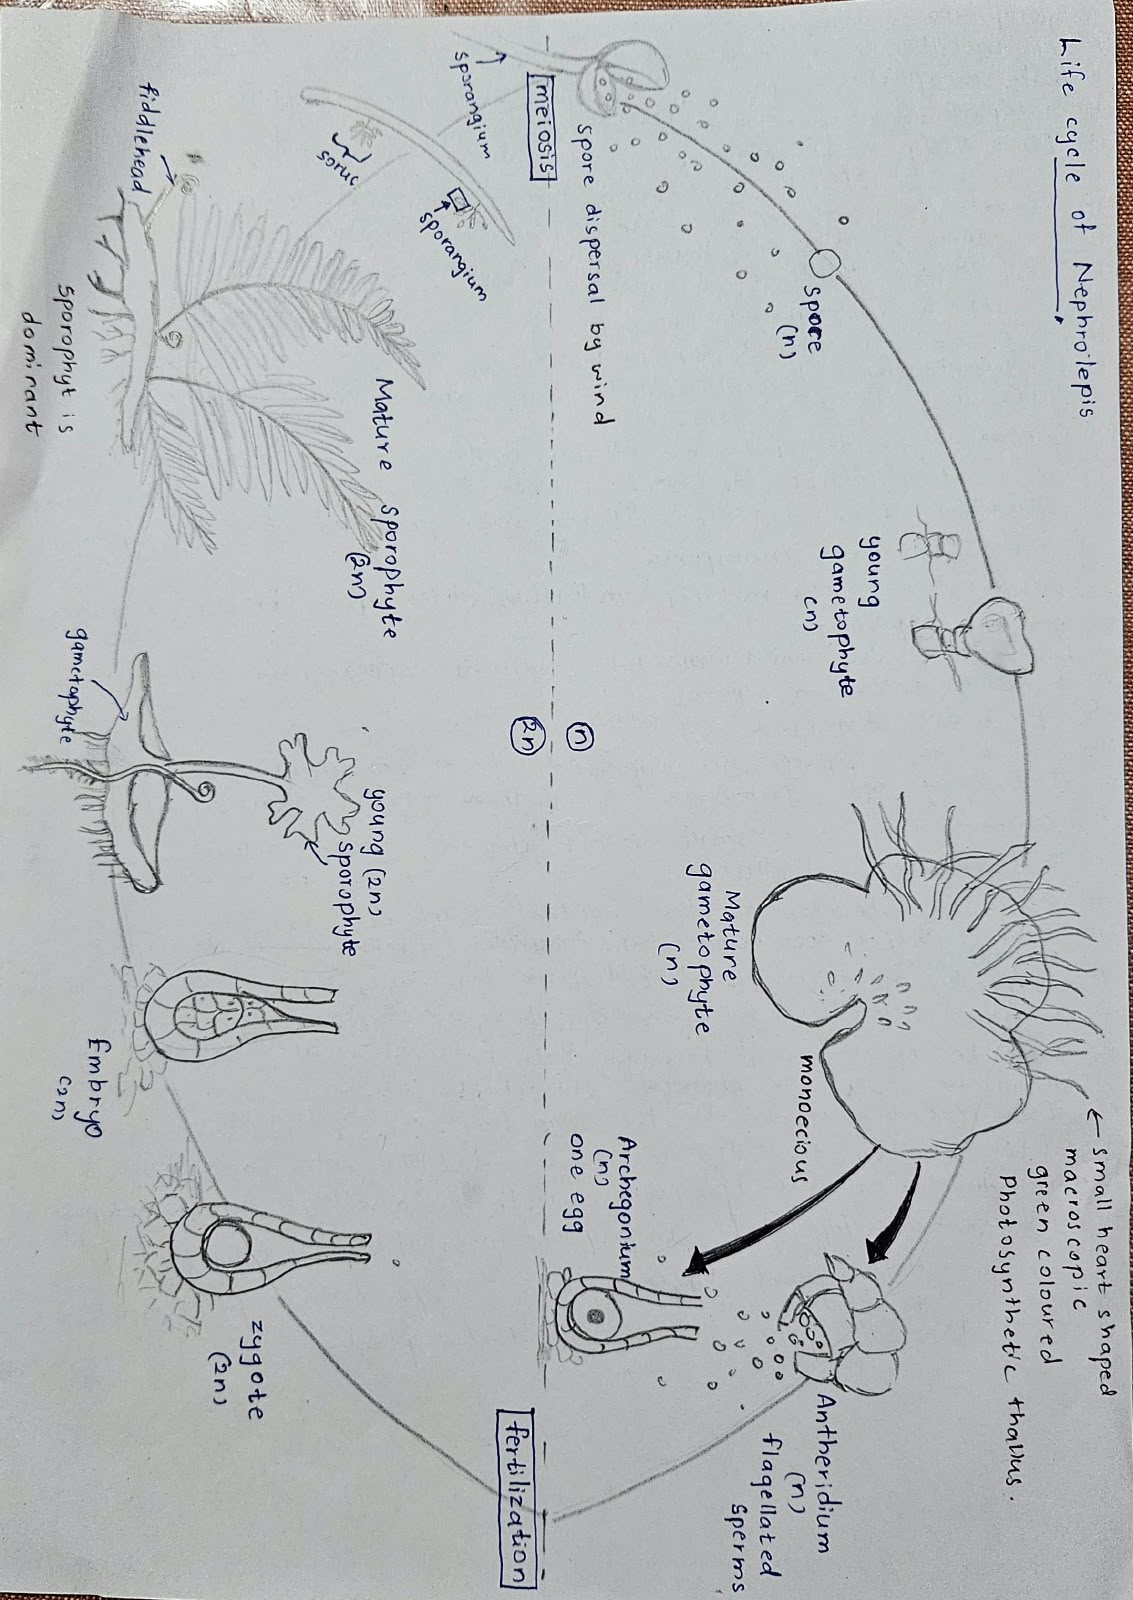 Life cycle of Nephrolepis
spore
(n)
spore dispersal by wind
meiosis
sporangium
sorus
sporangium
fiddlehead
sporophyt is
dominant
Mature sporophyte
(2n)
young
gametophyte
(n)
n
2n
gametophyte
young (2n)
sporophyte
Mature
gametophyte
(n)
monoecious
← small heart shaped
macroscopic
green coloured
photosynthetic thallus.
Archegonium
(n)
one egg
Antheridium
(n)
flagellated
sperms
fertilization
zygote
(2n)
Embryo
(2n)